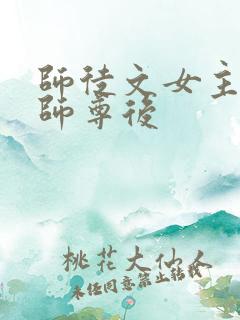 師徒文女主
師尊後
桃花大仙人
未經同意禁止轉載